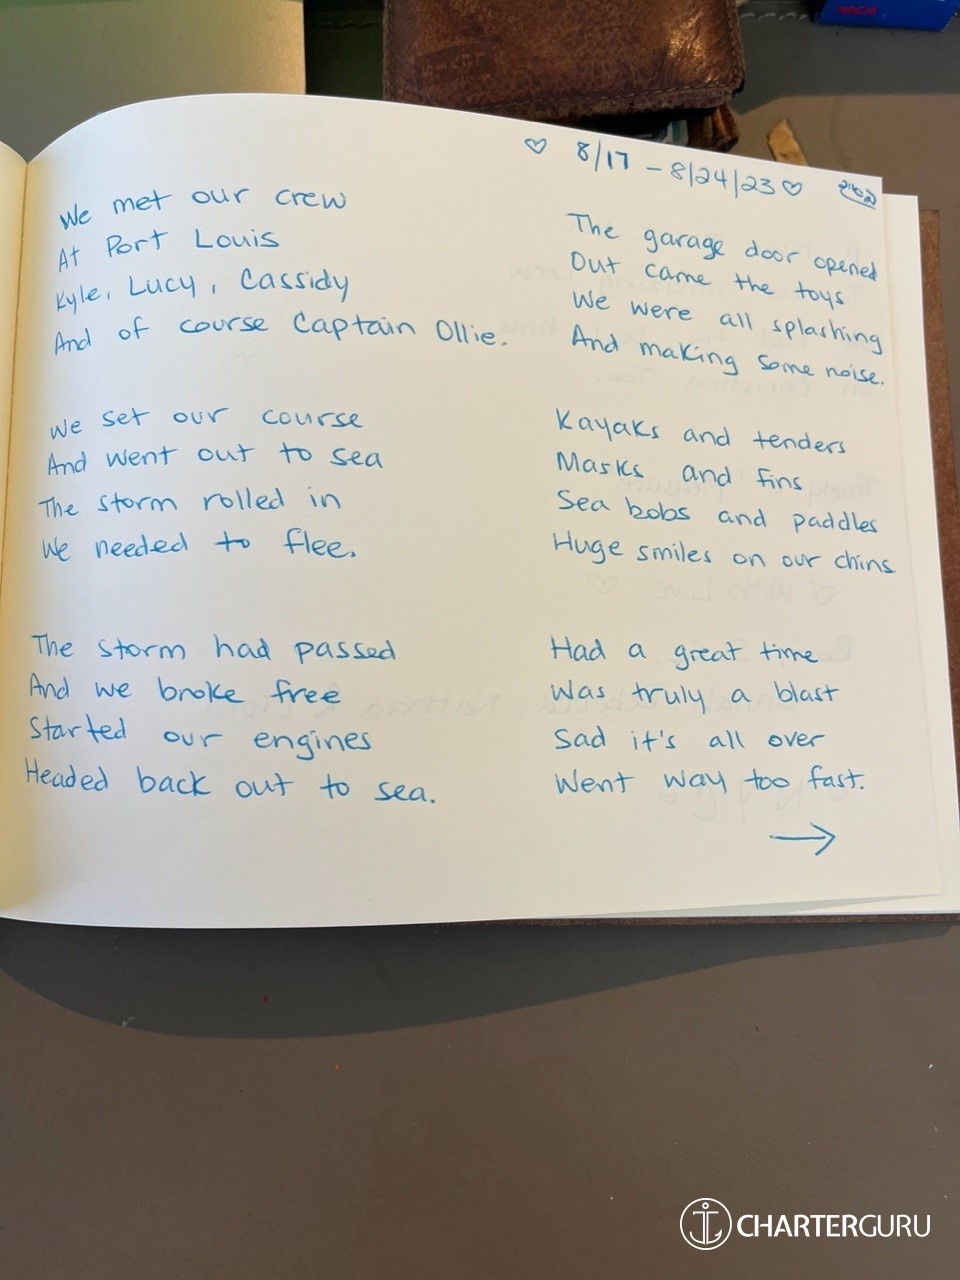 ♡ 8/17 – 8/24/23 ♡
We met our crew
At Port Louis
Kyle, Lucy, Cassidy
And of course Captain Ollie.
We set our course
And went out to sea
The storm rolled in
We needed to flee.
The storm had passed
And we broke free
Started our engines
Headed back out to sea.
The garage door opened
Out came the toys
We were all splashing
And making some noise.
Kayaks and tenders
Masks and fins
Sea bobs and paddles
Huge smiles on our chins
Had a great time
Was truly a blast
Sad it's all over
Went way too fast.
→
CHARTERGURU